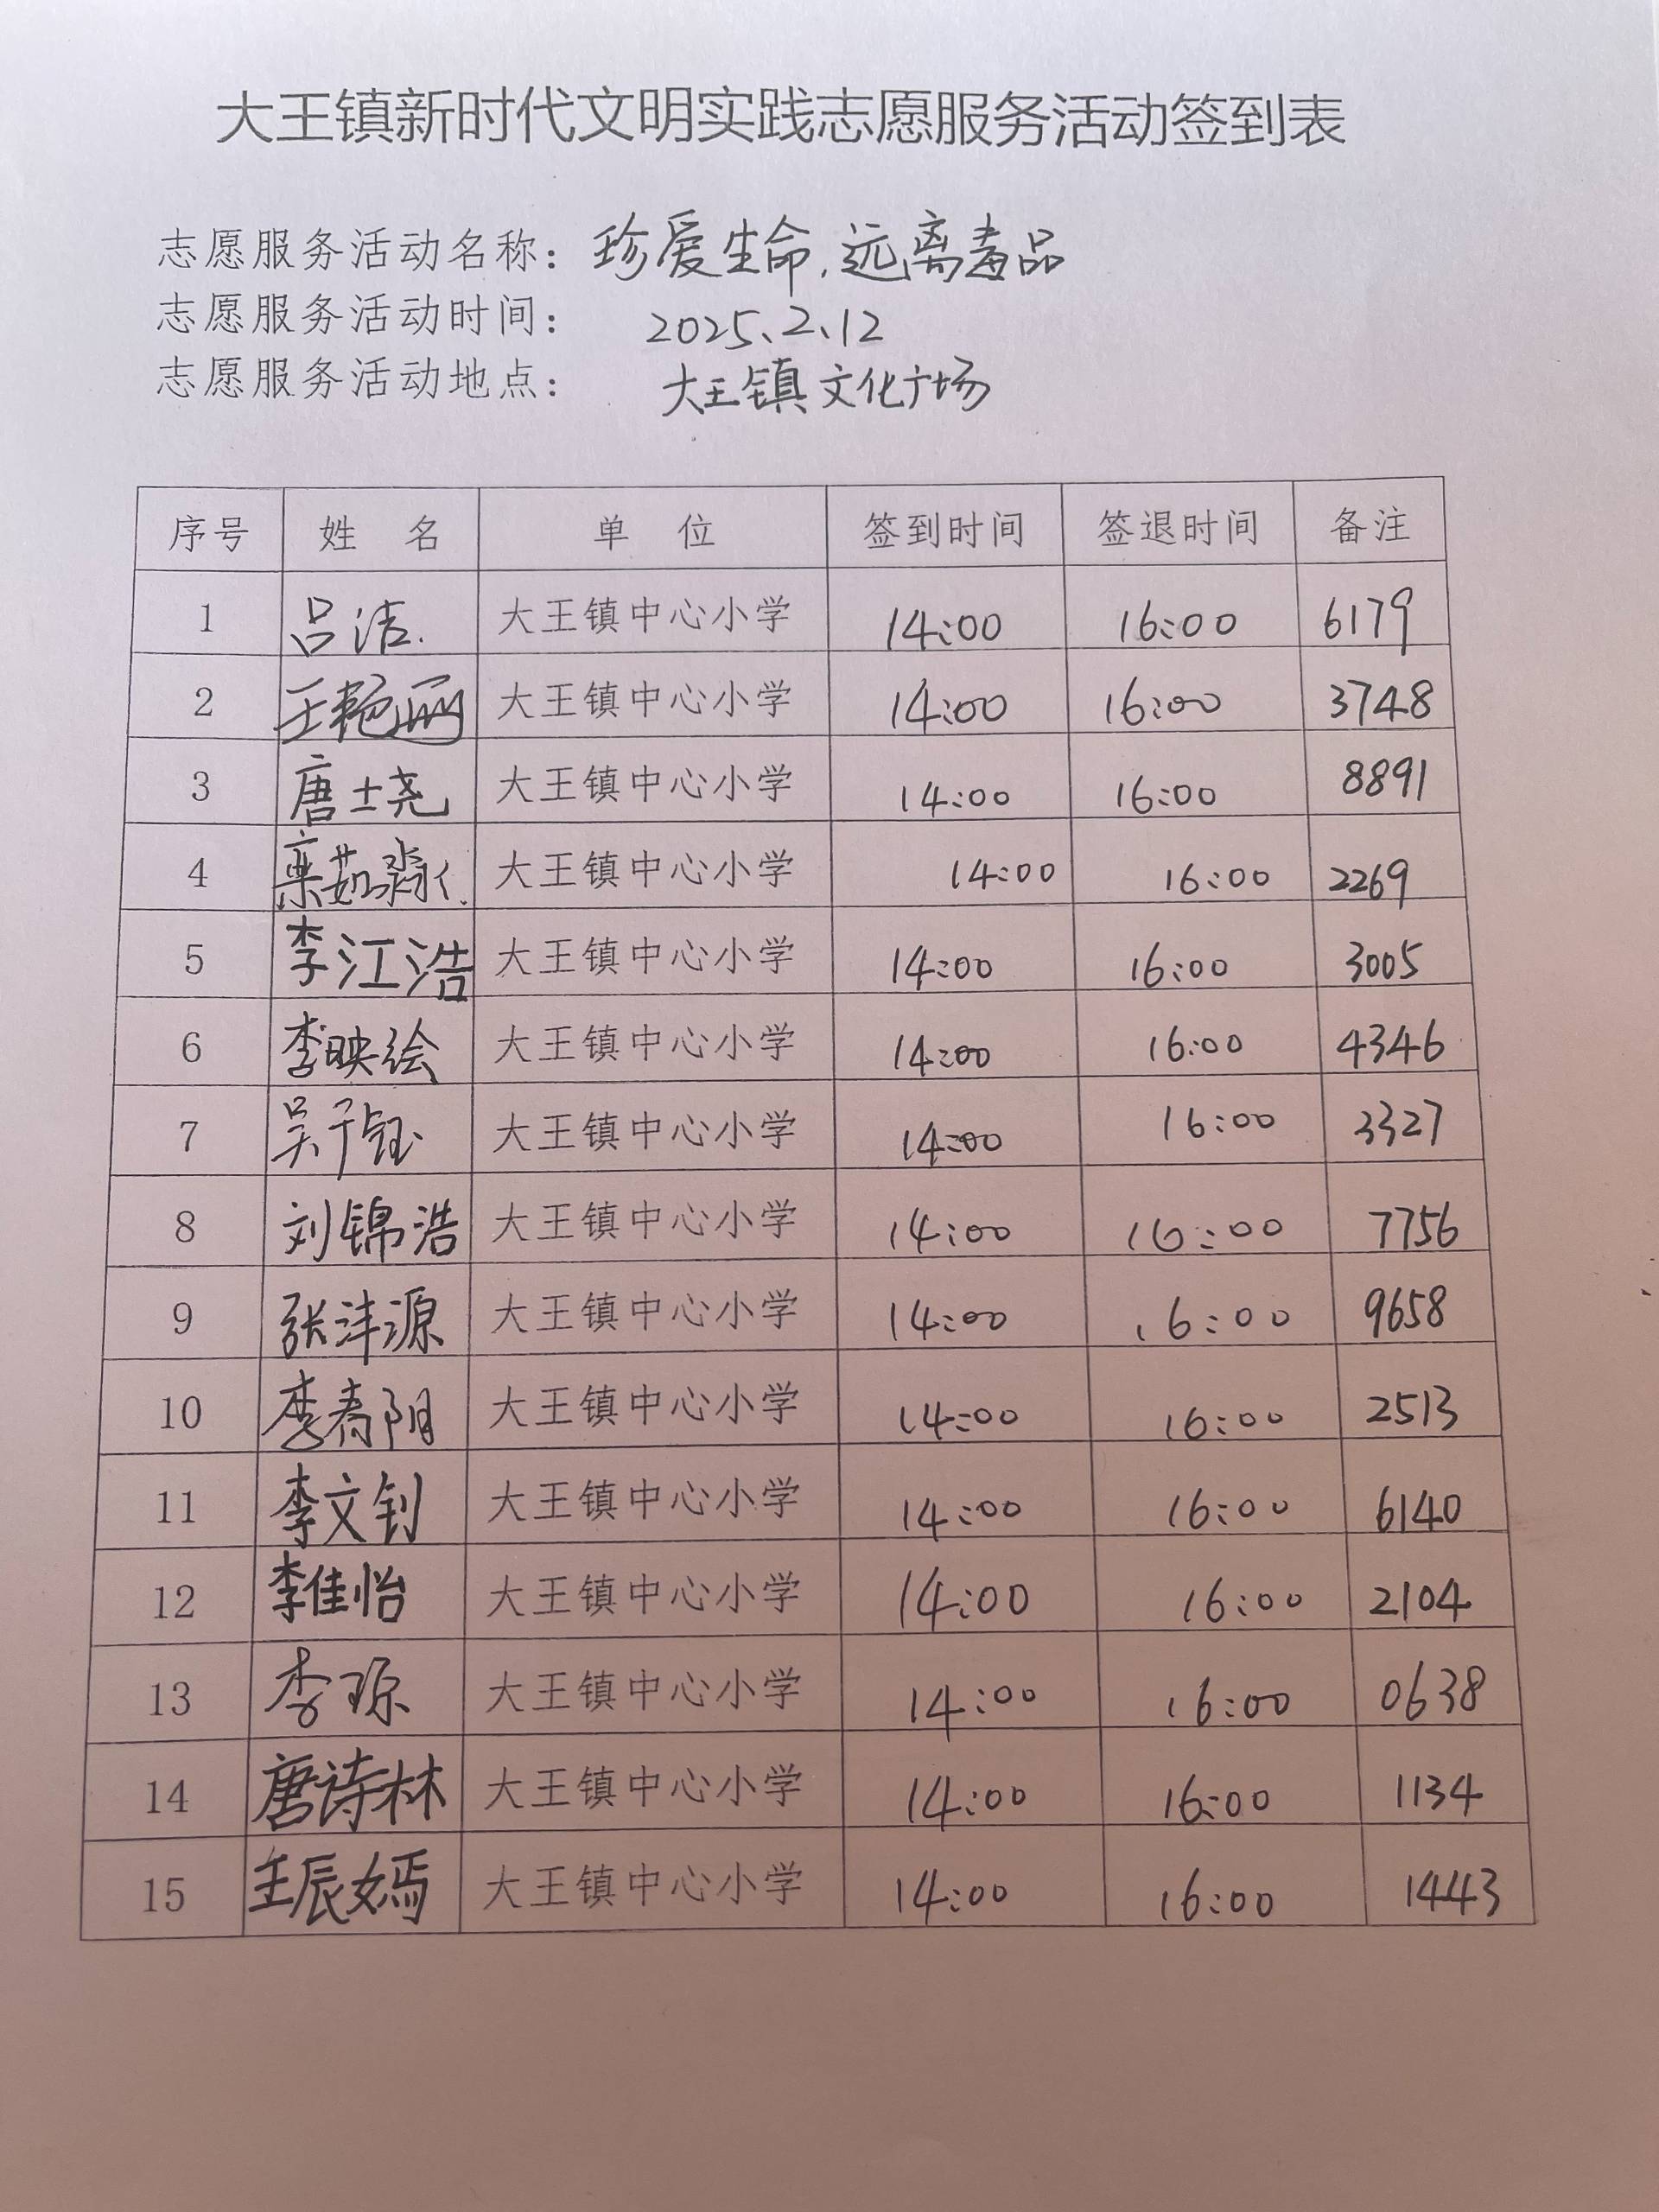 大王镇新时代文明实践志愿服务活动签到表
志愿服务活动名称：珍爱生命,远离毒品
志愿服务活动时间： 2025、2、12
志愿服务活动地点： 大王镇文化广场
序号 姓 名 单 位 签到时间 签退时间 备注
1 吕洁. 大王镇中心小学 14:00 16:00 6179
2 王艳丽 大王镇中心小学 14:00 16:00 3748
3 唐士尧 大王镇中心小学 14:00 16:00 8891
4 大王镇中心小学 14:00 16:00 2269
5 李江浩 大王镇中心小学 14:00 16:00 3005
6 李映绘 大王镇中心小学 14:00 16:00 4346
7 吴于钰 大王镇中心小学 14:00 16:00 3327
8 刘锦浩 大王镇中心小学 14:00 16:00 7756
9 张沣源 大王镇中心小学 14:00 16:00 9658
10 李春阳 大王镇中心小学 14:00 16:00 2513
11 李文钊 大王镇中心小学 14:00 16:00 6140
12 李佳怡 大王镇中心小学 14:00 16:00 2104
13 李琼 大王镇中心小学 14:00 16:00 0638
14 唐诗林 大王镇中心小学 14:00 16:00 1134
15 王辰嫣 大王镇中心小学 14:00 16:00 1443